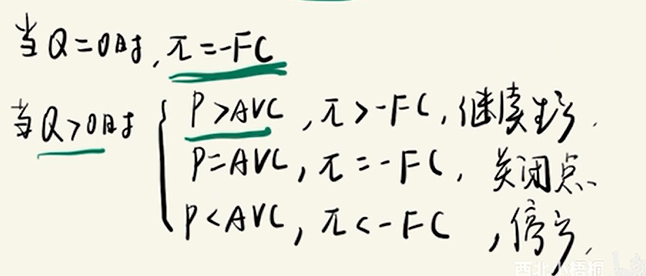 当Q=0时,π=-FC
当Q>0时 { P>AVC,π>-FC,继续生产.
P=AVC,π=-FC,关闭点.
P<AVC,π<-FC,停产.